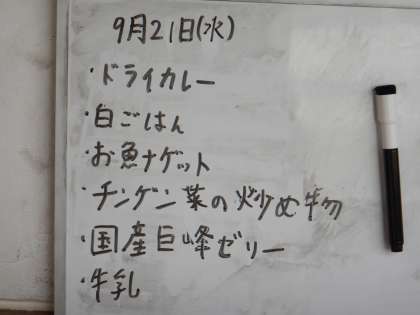 9月21日(水)
・ドライカレー
・白ごはん
・お魚ナゲット
・チンゲン菜の炒め物
・国産巨峰ゼリー
・牛乳